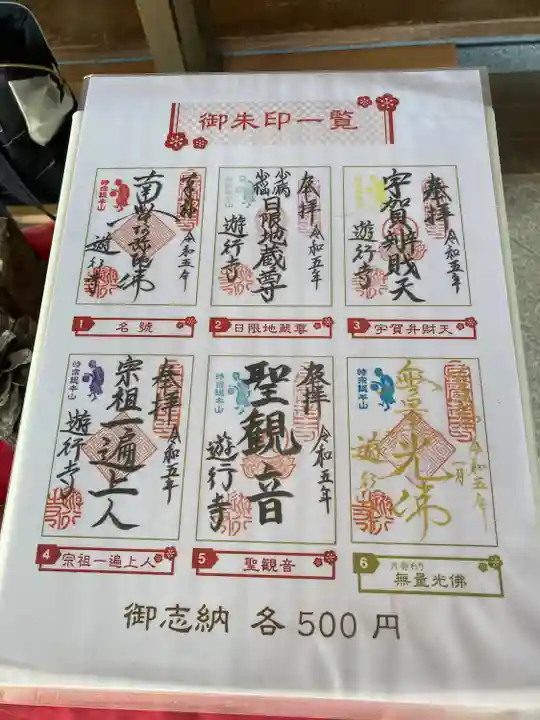 御朱印一覧
時宗総本山
南無阿弥陀佛
令和五年
遊行寺
1 名號
奉拝
日限地蔵尊
令和五年
遊行寺
2 日限地蔵尊
奉拝
宇賀辨財天
令和五年
遊行寺
3 宇賀弁財天
時宗総本山
奉拝
宗祖一遍上人
令和五年
遊行寺
4 宗祖一遍上人
時宗総本山
奉拝
聖観音
令和五年
遊行寺
5 聖観音
時宗総本山
無量光佛
令和五年
一月
遊行寺
6 月替わり
無量光佛
御志納 各500円